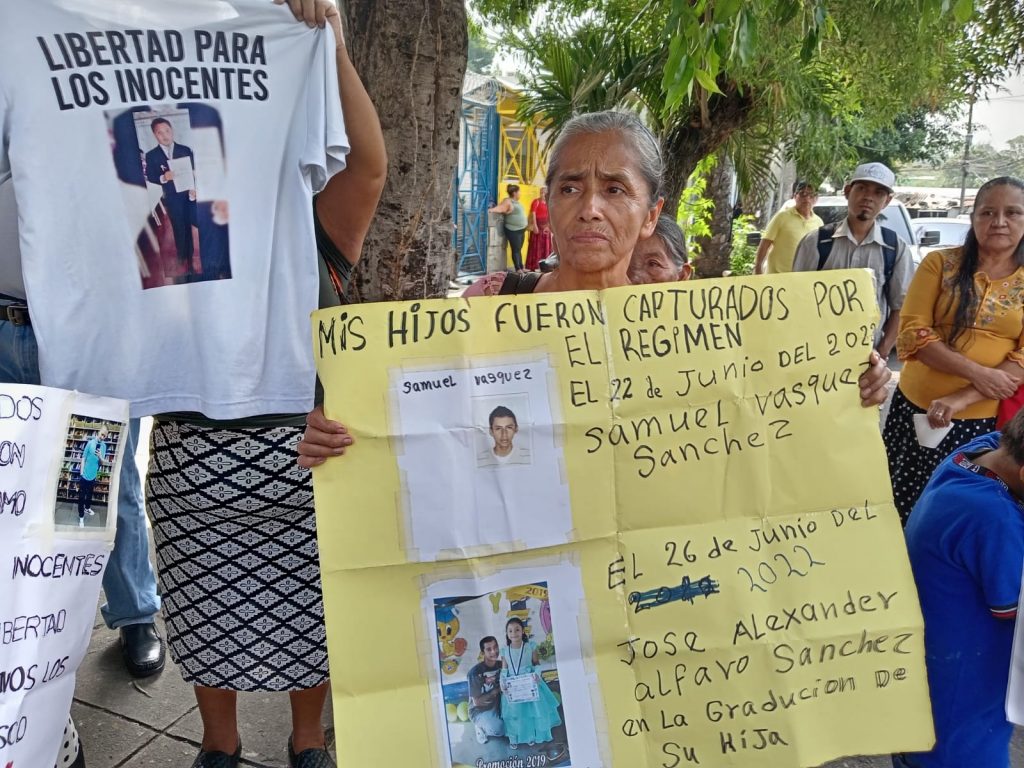 LIBERTAD PARA
LOS INOCENTES
MIS HIJOS FUERON CAPTURADOS POR
EL REGIMEN
EL 22 de JUNIO DEL 2022
Samuel vasquez
Sanchez
Samuel vasquez
EL 26 de Junio DEL
2022
Jose Alexander
alfaro Sanchez
en La Graducion De
Su Hija
2019
Promoción 2019
INOCENTES